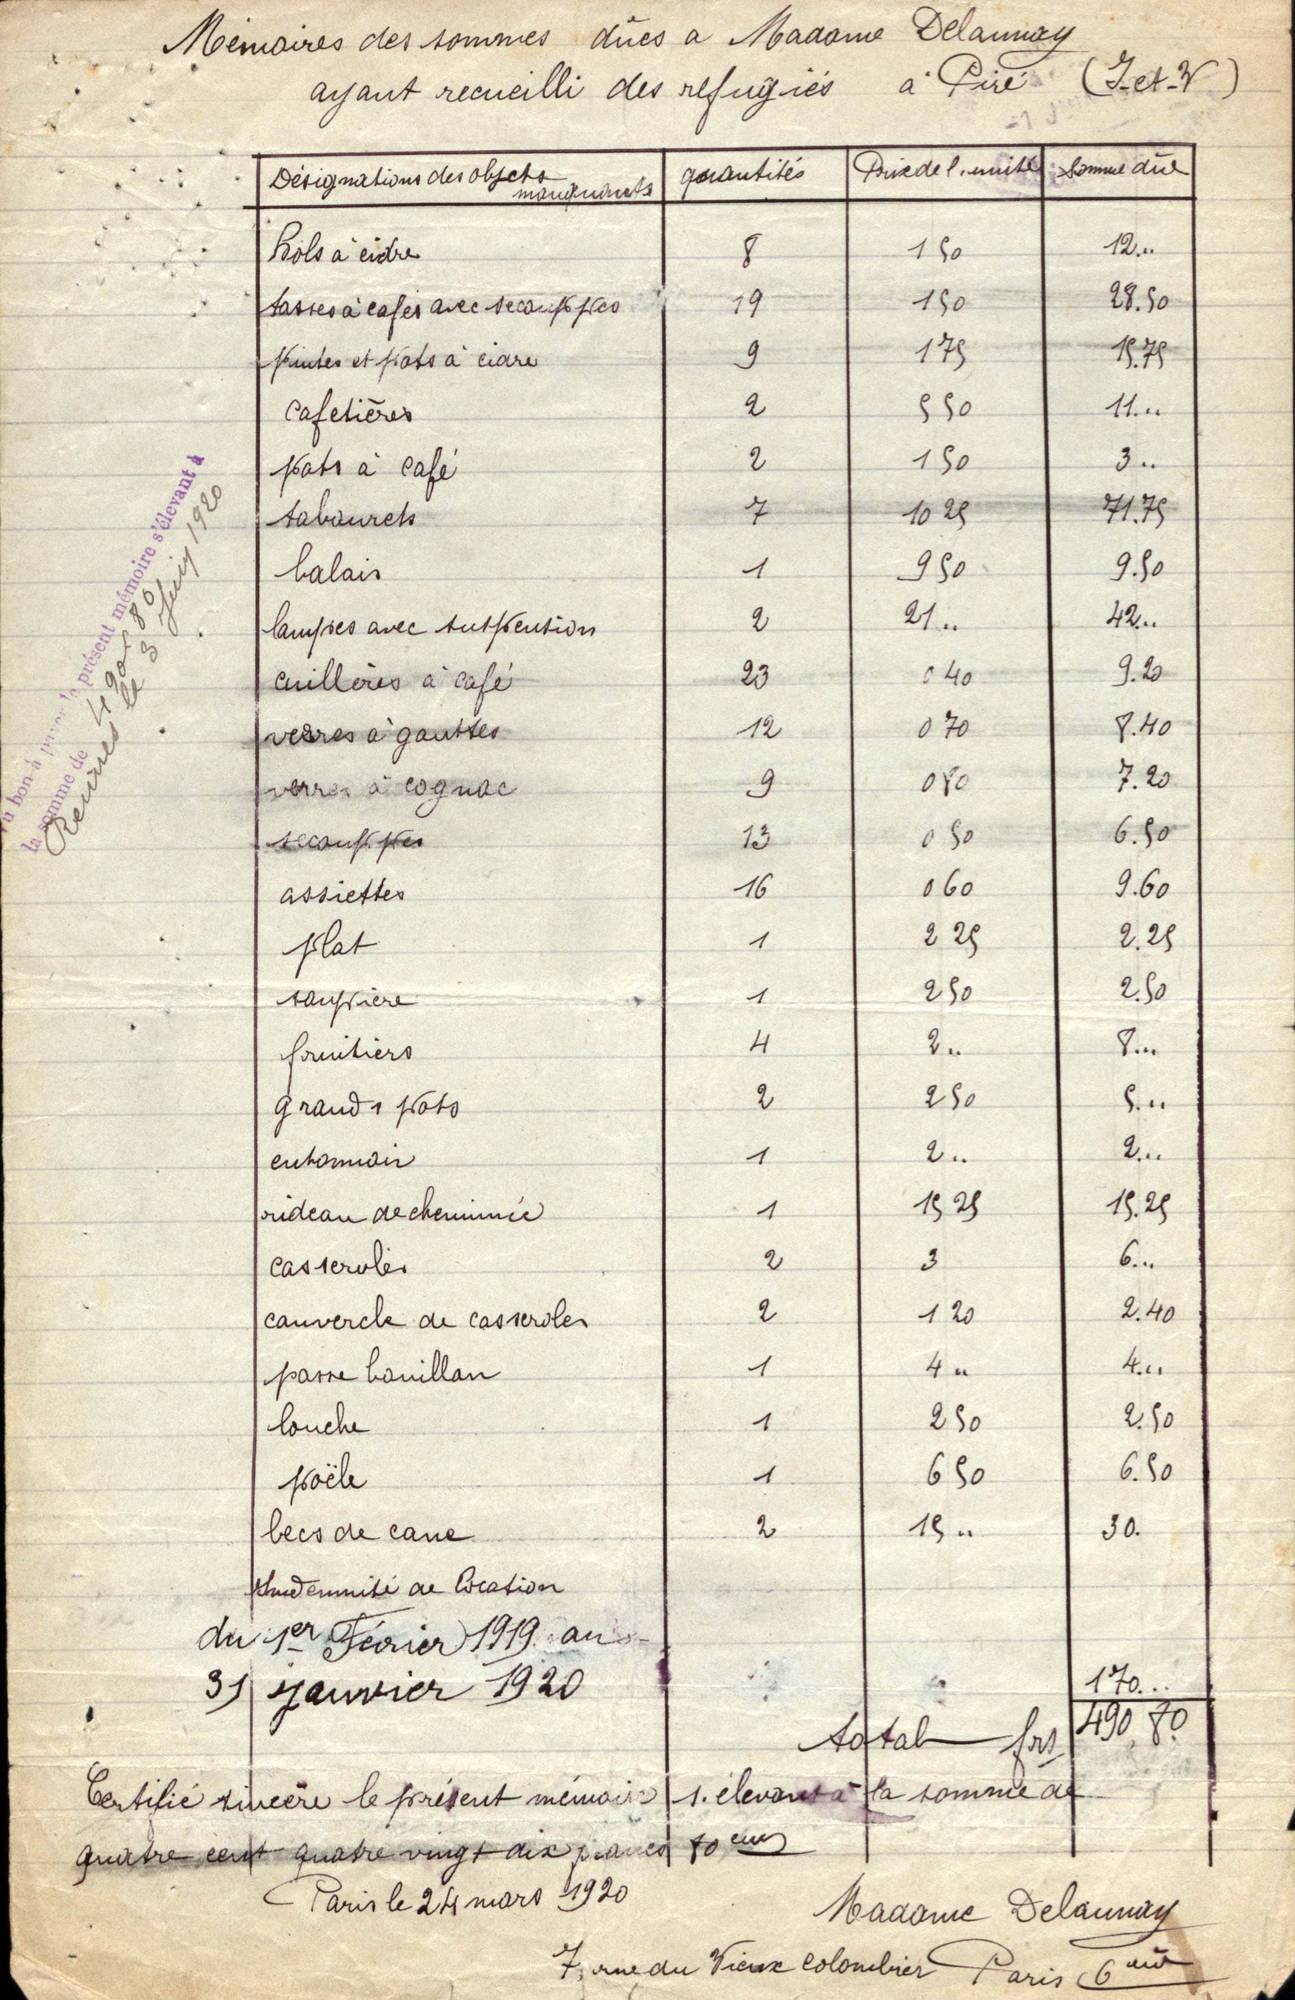 Mémoires des sommes dûes a Madame Delaunay
ayant recueilli des refugiés à Piré (I-et-V)
Désignations des objets manquants quantités Prix de l'unité Somme dûe
bols à cidre 8 1 50 12..
tasses à cafés avec secouppes 19 1 50 28.50
pintes et pots à cidre 9 1 75 15.75
cafetières 2 5 50 11...
pots à café 2 1 50 3..
tabourets 7 10 25 71.75
balais 1 9 50 9.50
lampes avec suspention 2 21.. 42..
cuillères à café 23 0 40 9.20
verres à gouttes 12 0 70 8.40
verres à cognac 9 0 80 7.20
secouppes 13 0 50 6.50
assiettes 16 0 60 9.60
plat 1 2 25 2.25
soupiere 1 2 50 2.50
fruitiers 4 2.. 8...
grands pots 2 2 50 5...
entonnoir 1 2.. 2...
rideau de cheminée 1 15 25 15.25
casseroles 2 3 6...
couvercle de casseroles 2 1 20 2.40
passe bouillon 1 4.. 4...
louche 1 2 50 2.50
poële 1 6 50 6.50
becs de cane 2 15.. 30.
Indemnité de location
du 1er Février 1919 au
31 janvier 1920 170...
total frs 490,80
Certifié sincère le présent mémoire s'élevant à la somme de
quatre cent quatre vingt dix francs 80 cms
Paris le 24 mars 1920
Madame Delaunay
7, rue du Vieux Colombier Paris 6eme
Vu bon à payer le présent mémoire s'élevant à
la somme de 490f 80
Rennes le 3 Juin 1920